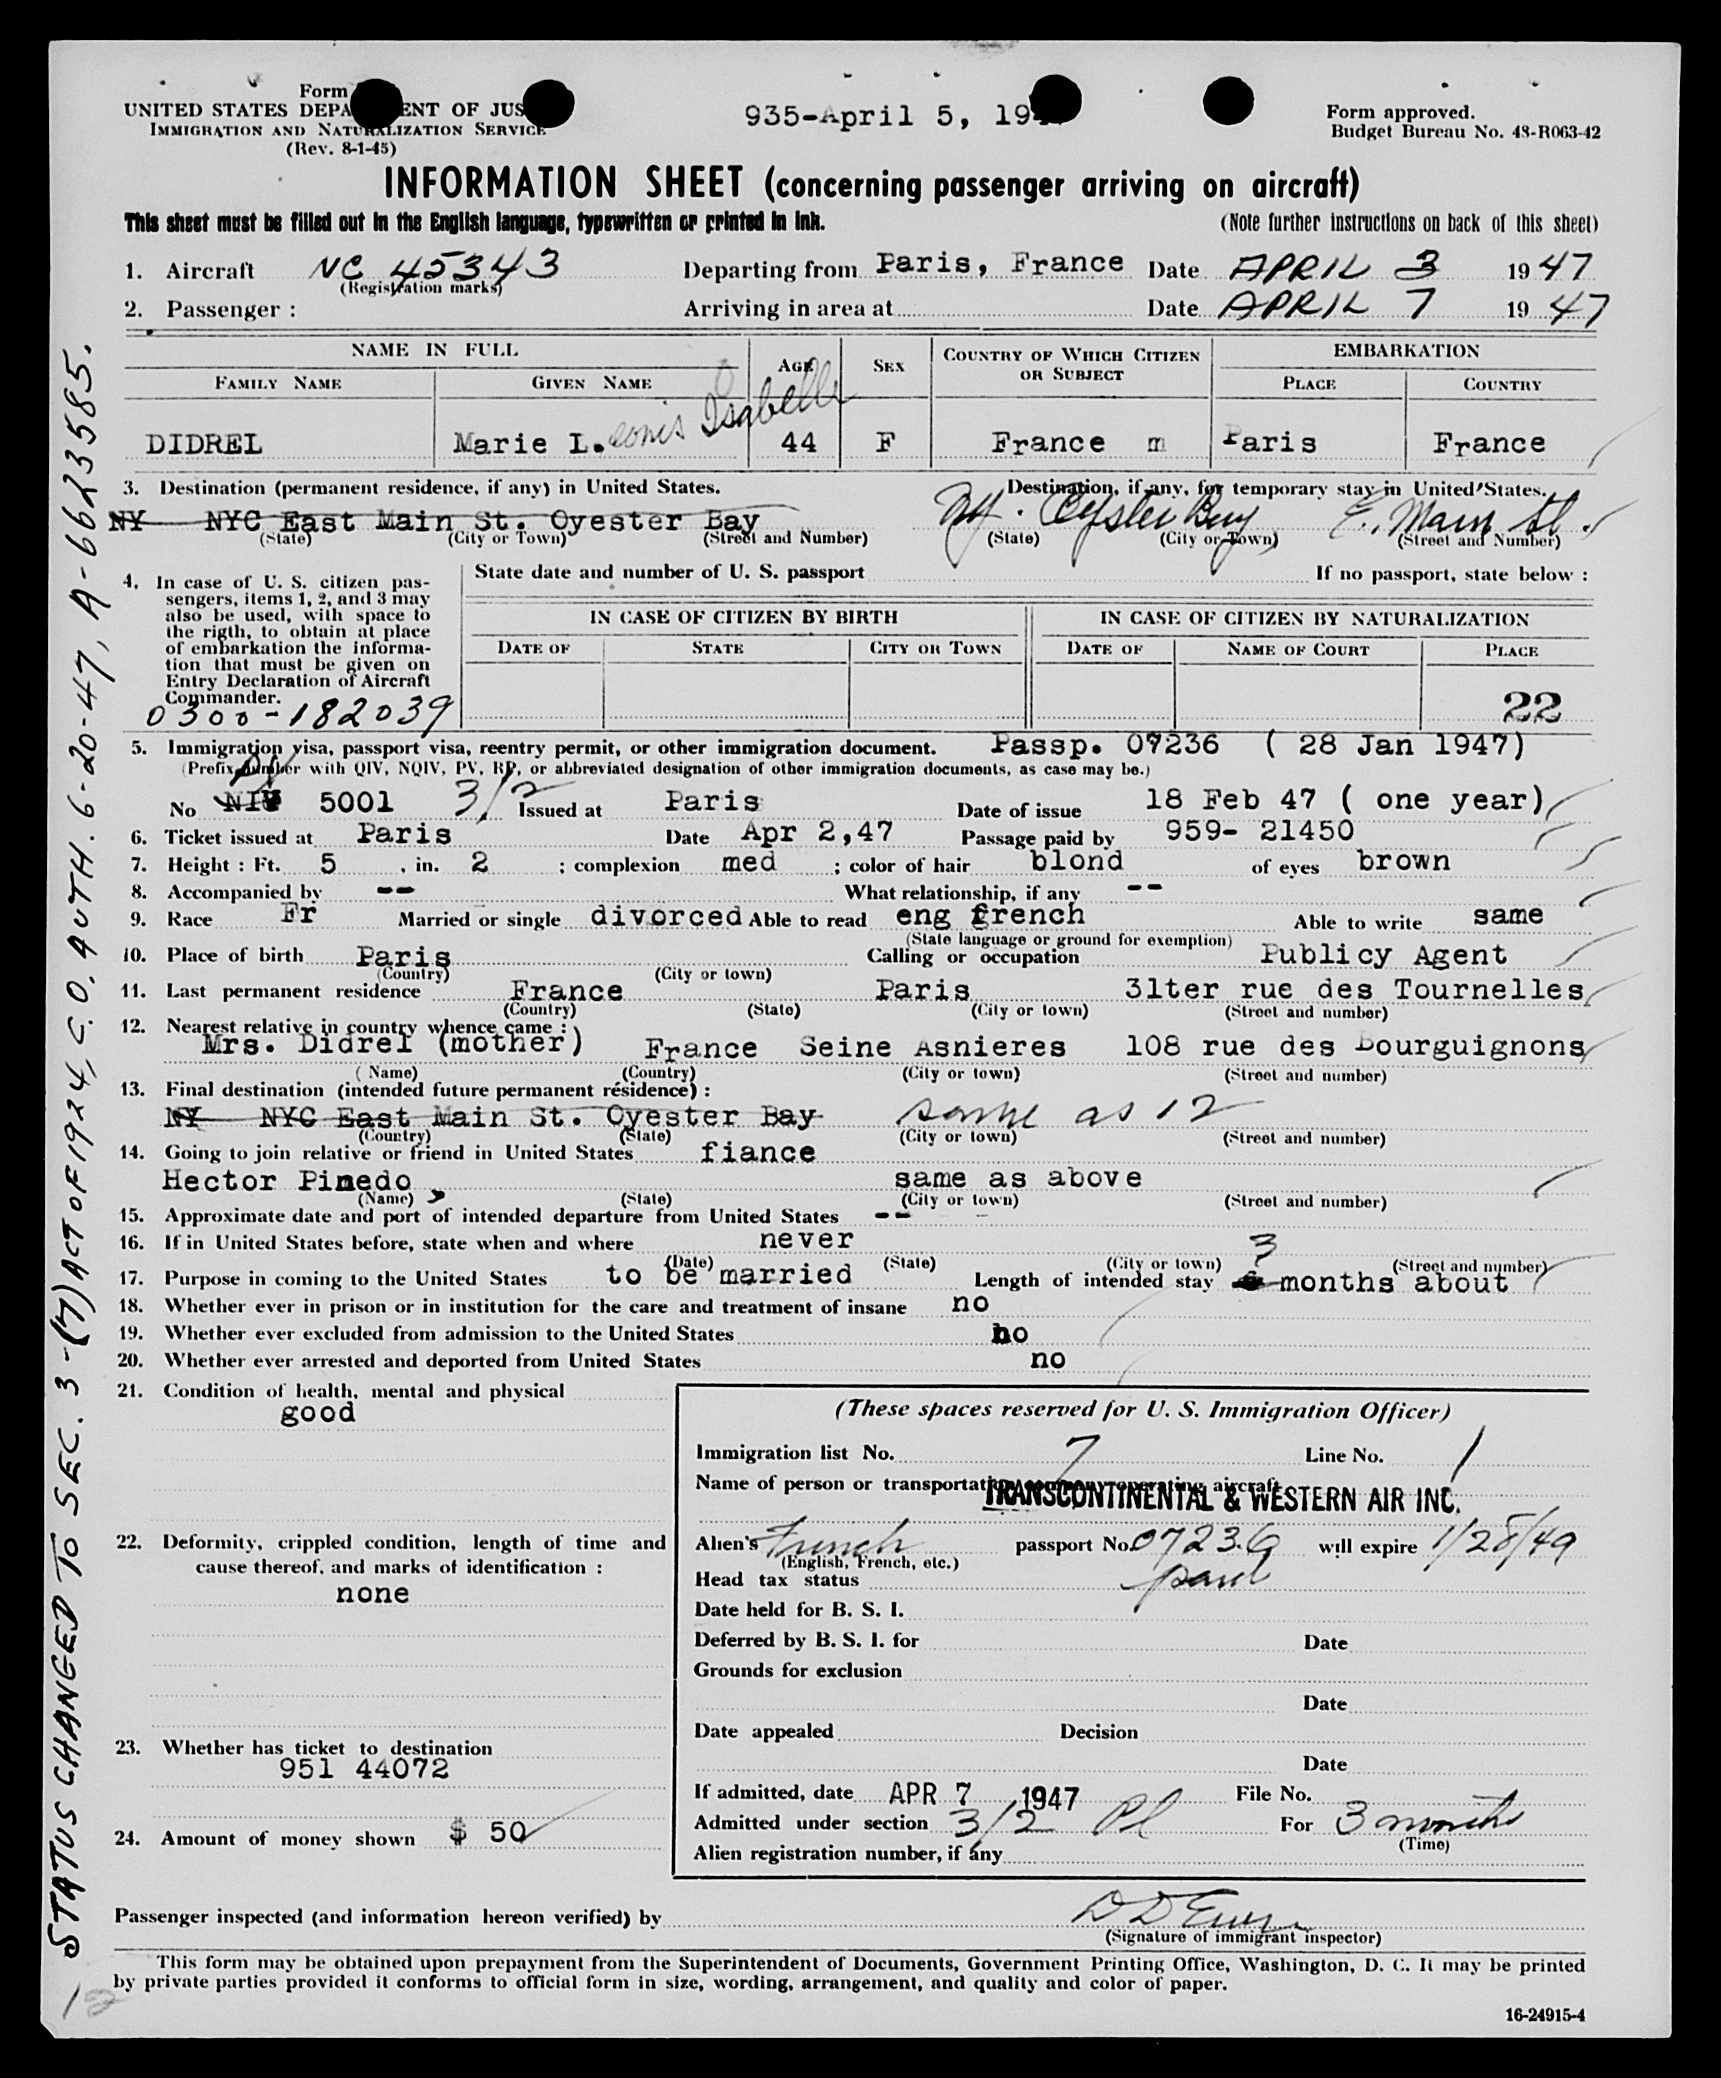 Form
UNITED STATES DEPA ENT OF JUS
IMMIGRATION AND NATURALIZATION SERVICE
(Rev. 8-1-45)
935-April 5, 19
Form approved.
Budget Bureau No. 43-R063-42
INFORMATION SHEET (concerning passenger arriving on aircraft)
This sheet must be filled out in the English language, typewritten or printed in ink. (Note further instructions on back of this sheet)
1. Aircraft NC 45343 Departing from Paris, France Date APRIL 3 1947
(Registration marks)
2. Passenger : Arriving in area at Date APRIL 7 1947
NAME IN FULL AGE SEX COUNTRY OF WHICH CITIZEN OR SUBJECT EMBARKATION
FAMILY NAME GIVEN NAME PLACE COUNTRY
DIDREL Marie L. Isabelle 44 F France m Paris France
3. Destination (permanent residence, if any) in United States. Destination, if any, for temporary stay in United States.
NY NYC East Main St. Oyester Bay NY. Oyster Bay E. Main St.
(State) (City or Town) (Street and Number) (State) (City or Town) (Street and Number)
4. In case of U. S. citizen pas-
sengers, items 1, 2, and 3 may
also be used, with space to
the rigth, to obtain at place
of embarkation the informa-
tion that must be given on
Entry Declaration of Aircraft
Commander.
0300-182039
State date and number of U. S. passport If no passport, state below :
IN CASE OF CITIZEN BY BIRTH IN CASE OF CITIZEN BY NATURALIZATION
DATE OF STATE CITY OR TOWN DATE OF NAME OF COURT PLACE
22
5. Immigration visa, passport visa, reentry permit, or other immigration document. Passp. 07236 ( 28 Jan 1947)
(Prefix number with QIV, NQIV, PV, RP, or abbreviated designation of other immigration documents, as case may be.)
No NIV PV 5001 3/2 Issued at Paris Date of issue 18 Feb 47 ( one year)
6. Ticket issued at Paris Date Apr 2,47 Passage paid by 959- 21450
7. Height : Ft. 5 , in. 2 ; complexion med ; color of hair blond of eyes brown
8. Accompanied by -- What relationship, if any --
9. Race Fr Married or single divorced Able to read eng french Able to write same
(State language or ground for exemption)
10. Place of birth Paris Calling or occupation Publicy Agent
(Country) (City or town)
11. Last permanent residence France Paris 31ter rue des Tournelles
(Country) (State) (City or town) (Street and number)
12. Nearest relative in country whence came :
Mrs. Didrel (mother) France Seine Asnieres 108 rue des Bourguignons
(Name) (Country) (City or town) (Street and number)
13. Final destination (intended future permanent résidence) :
NY NYC East Main St. Oyester Bay same as 12
(Country) (State) (City or town) (Street and number)
14. Going to join relative or friend in United States fiance
Hector Pinedo same as above
(Name) (State) (City or town) (Street and number)
15. Approximate date and port of intended departure from United States --
16. If in United States before, state when and where never
(Date) (State) (City or town) (Street and number)
17. Purpose in coming to the United States to be married Length of intended stay 3 months about
18. Whether ever in prison or in institution for the care and treatment of insane no
19. Whether ever excluded from admission to the United States no
20. Whether ever arrested and deported from United States no
21. Condition of health, mental and physical
good
22. Deformity, crippled condition, length of time and
cause thereof, and marks of identification :
none
23. Whether has ticket to destination
951 44072
24. Amount of money shown $ 50
(These spaces reserved for U. S. Immigration Officer)
Immigration list No. 7 Line No. 1
Name of person or transportation company operating aircraft
TRANSCONTINENTAL & WESTERN AIR INC.
Alien's French passport No. 07236 will expire 1/28/49
(English, French, etc.)
Head tax status paid
Date held for B. S. I.
Deferred by B. S. I. for Date
Grounds for exclusion
Date
Date appealed Decision
Date
If admitted, date APR 7 1947 File No.
Admitted under section 3/2 Pl For 3 months
(Time)
Alien registration number, if any
Passenger inspected (and information hereon verified) by
(Signature of immigrant inspector)
This form may be obtained upon prepayment from the Superintendent of Documents, Government Printing Office, Washington, D. C. It may be printed
by private parties provided it conforms to official form in size, wording, arrangement, and quality and color of paper.
12
16-24915-4
STATUS CHANGED TO SEC. 3-(7) ACT OF 1924, C.O. AUTH. 6-20-47, A-6623585.